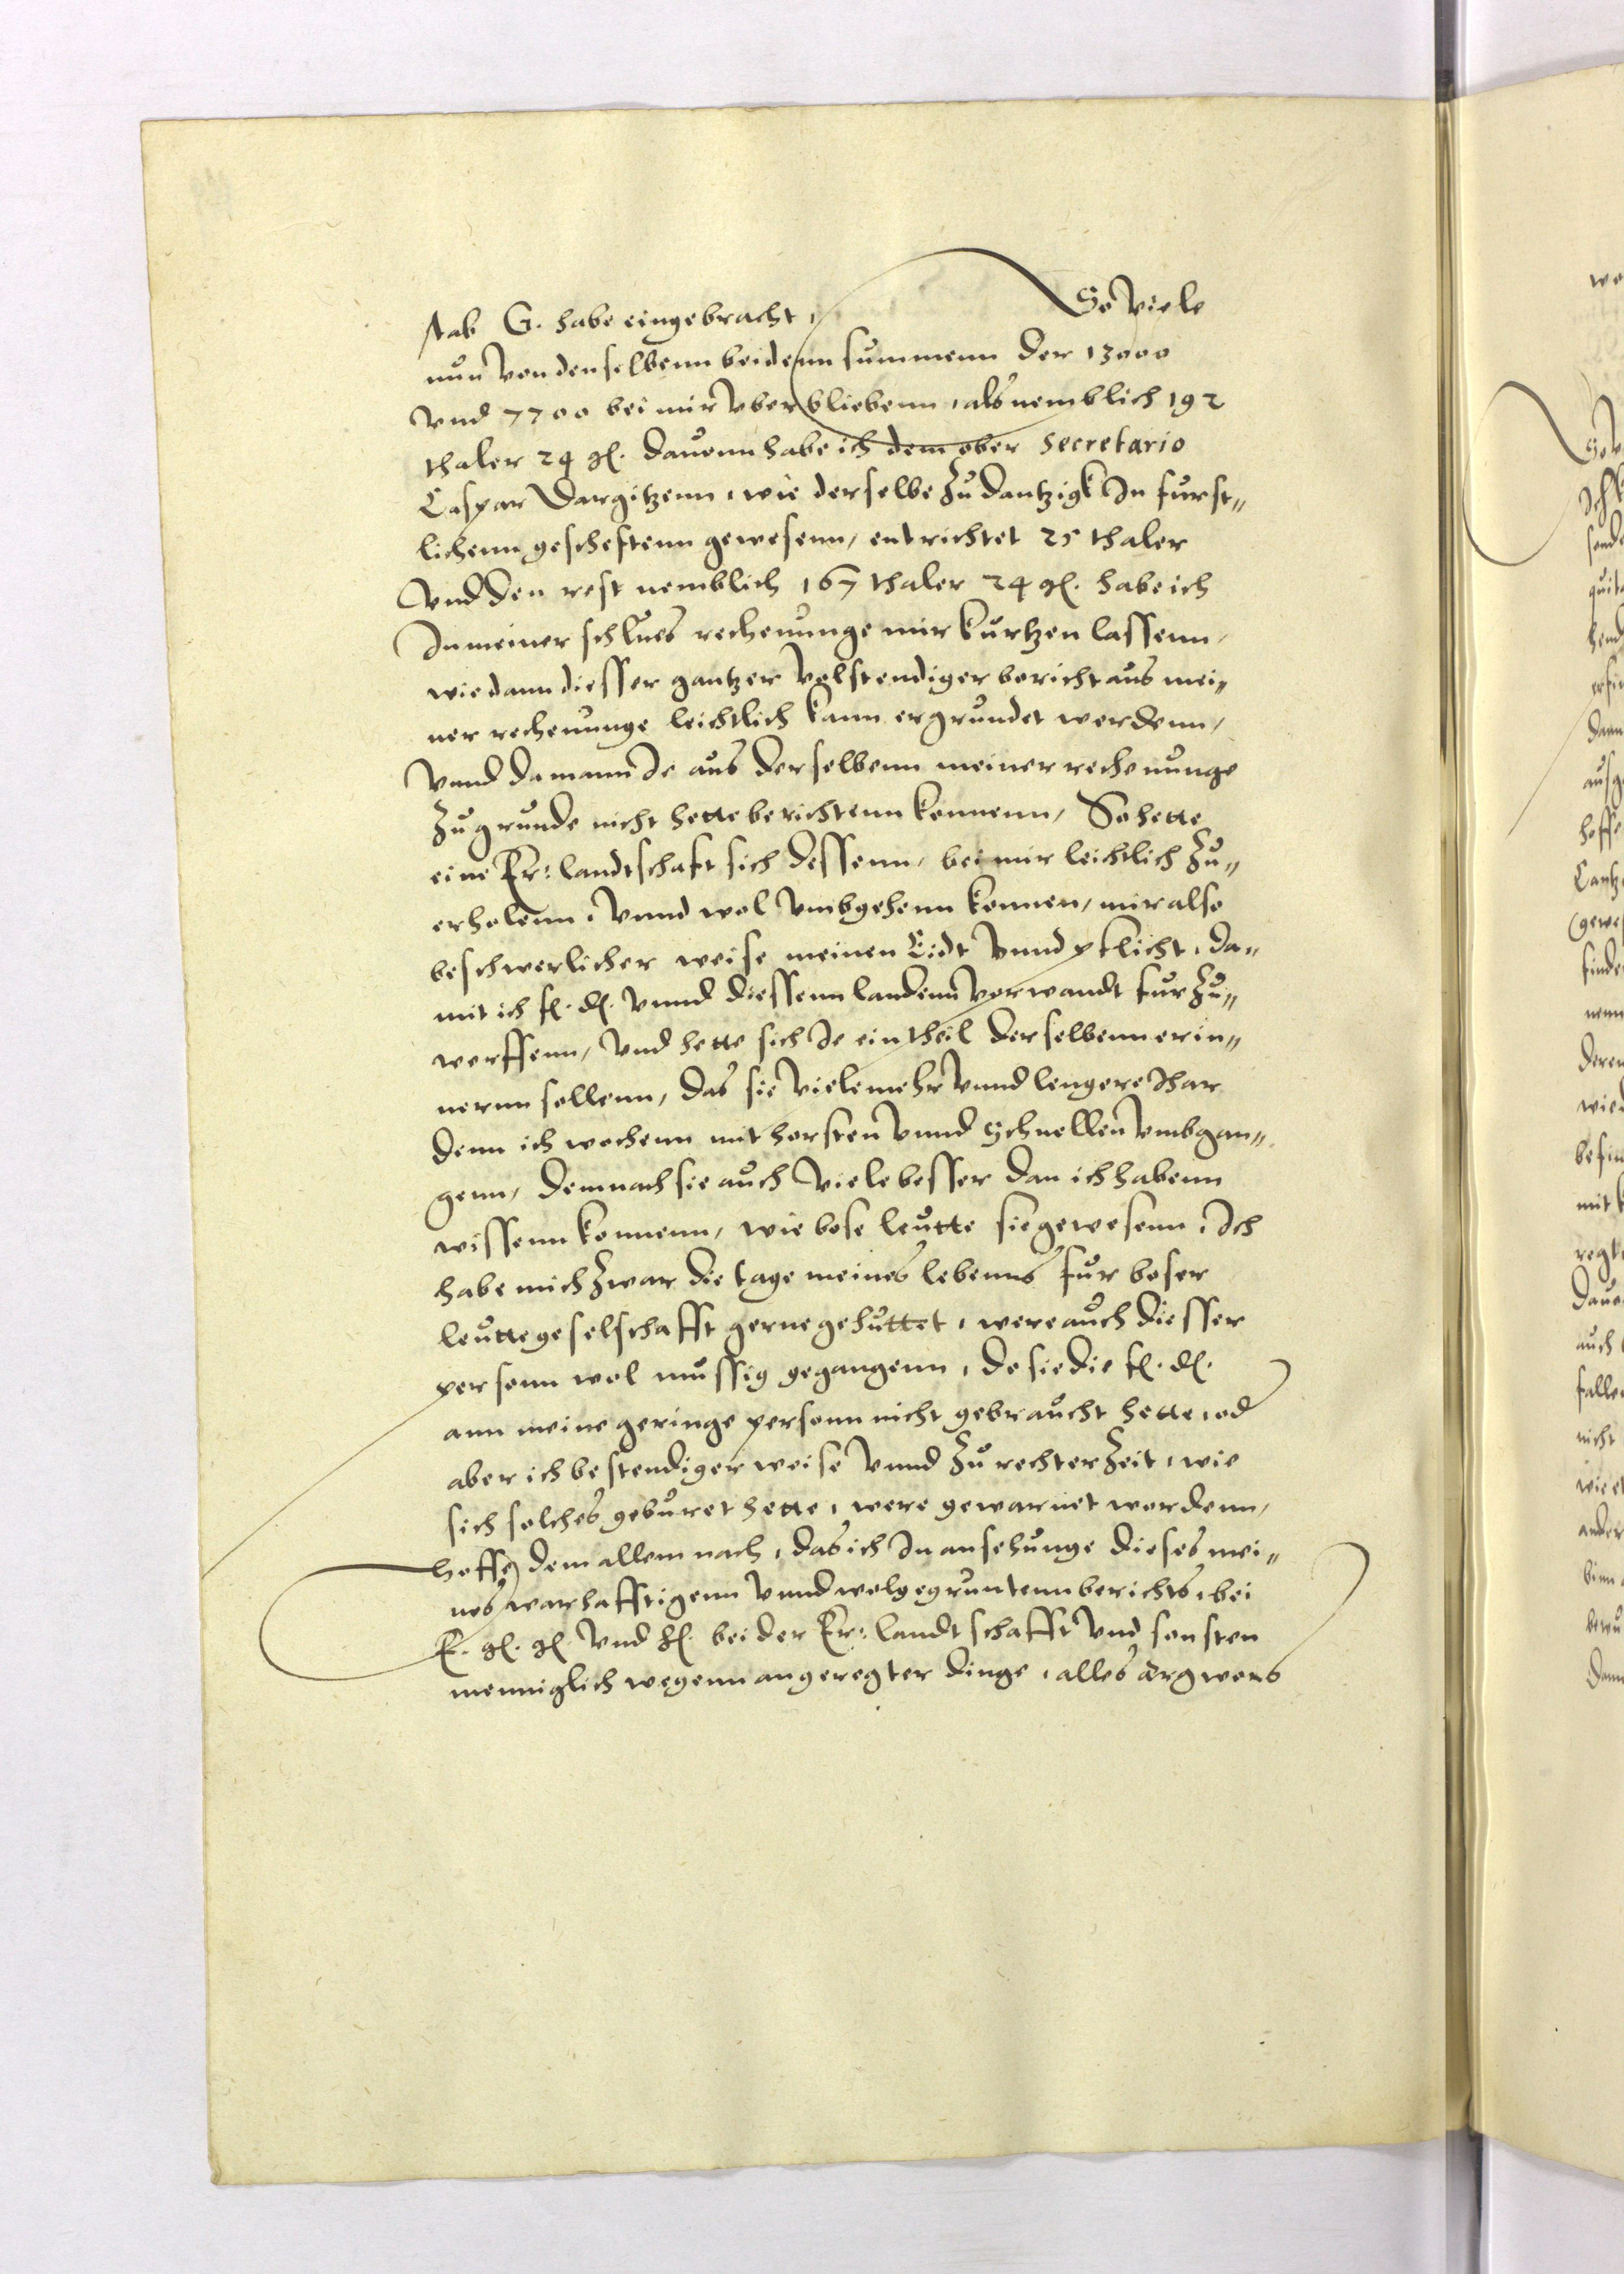 stab G. habe eingebracht, So viele
nun von denselbenn beidenn summenn der 13000
vnd 7700 bei mir vberbliebenn, als nemblich 192
thaler 24 gl. dauonn habe ich dem ober Secretario
Caspar Dargitzenn, wie derselbe zu dantzigk In furst„
lichenn gescheftenn gewesenn, entrichtet 25 thaler
Vnd den rest nemblich 167 thaler 24 gl. habe ich
In meiner schlues rechenunge mir kurtzen lassenn,
wie dann diesser gantzer volstendiger bericht aus mei„
ner rechenunge leichtlich kann ergrundet werdenn,
Vnnd da mann Je aus derselbenn meiner rechenunge
zu grunde nicht hette berichtenn konnenn, So hette
eine Er: landtschaft sich dessenn, bei mir leichtlich zu„
erholenn, vnnd wol vmbgehenn konnen, mir also
beschwerlicher weise meinen Eidt vnnd pflicht, da„
mit ich f. d. vnnd diessenn landenn vorwandt furzu„
werffenn, Vnd hette sich Je ein theil derselbenn erin„
nernn sollenn, das sie viele mehr vnnd lengere Jhar
denn ich wochenn mit horsten vnnd Schnellen vmbgan„
genn, demnach sie auch viele besser dan ich habenn
wissenn konnenn, wie bose leutte sie gewesenn, Ich
habe mich zwar die tage meines lebenns fur boser
leutte geselschafft gerne gehuttet, were auch diesser
personn wol mussig gegangenn, do sie die f. d.
ann meine geringe personn nicht gebraucht hette, od
aber ich bestendiger weise vnnd zu rechter zeit, wie
sich solches geburet hette, were gewarnet wordenn,
hoffe dem allem nach, das ich In ansehunge dieses mei„
nes warhafftigenn vnnd wolgegruntenn berichts, bei
E. gl. gl. vnd hl. bei der Er: landtschafft vnd sonsten
menniglich wegenn angeregter dinge, alles argwons